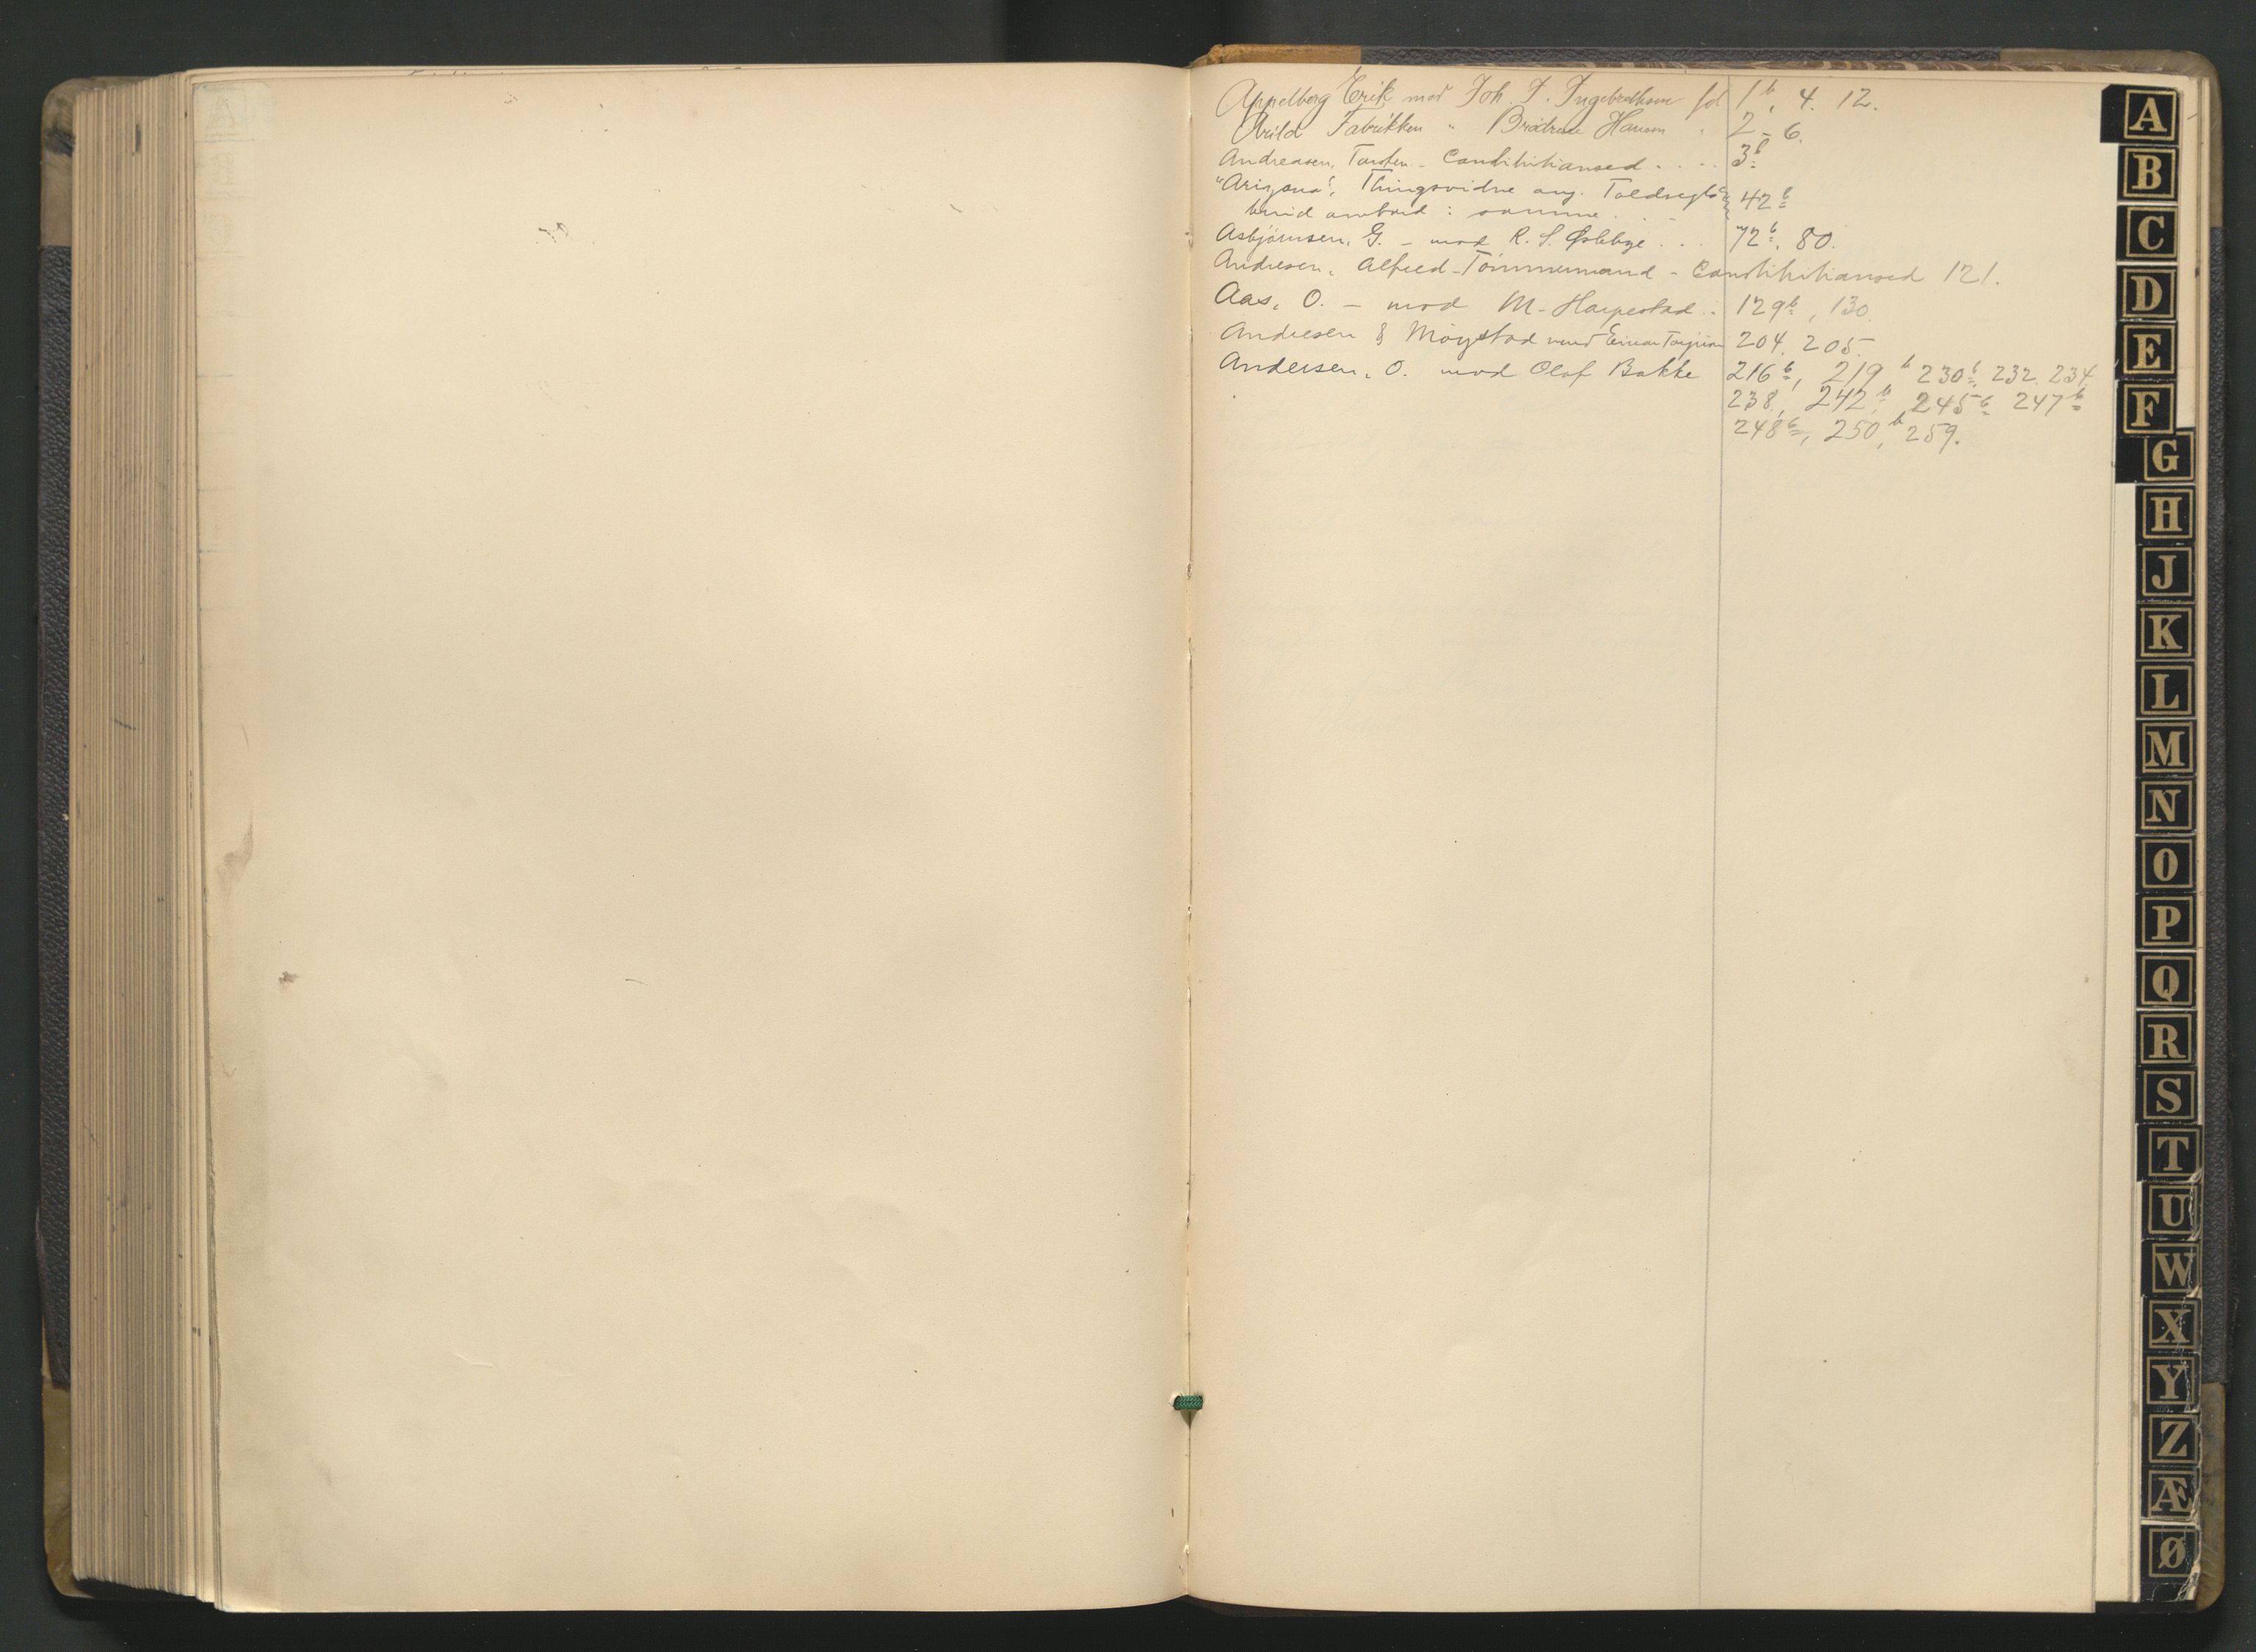 Appelberg Erik mod Joh. F. Ingebrethsen fol 1b, 4. 12.
Arild Fabrikken " Brødrene Hansen " 2 - 6.
Andreasen, Torsten - Constitutionsed . . . . 3b
"Arizona", Thingsvidne ang. Toldregl
ombord i samme . . . 42b
Asbjörnsen, G. - mod R. S. Østbye . . . 72b, 80.
Andresen, Alfred - Tömmermand - Constitutionsed 121.
Aas, O. - mod M. Harpestad . . 129b, 130.
Andresen & Möystad mod Einar 204. 205.
Andersen, O. mod Olaf Bakke 216b, 219b 230b, 232. 234
238, 242b, 245b 247b
248b, 250b, 259.
A
B
C
D
E
F
G
H
J
K
L
M
N
O
P
Q
R
S
T
U
W
X
Y
Z
Æ
Ø